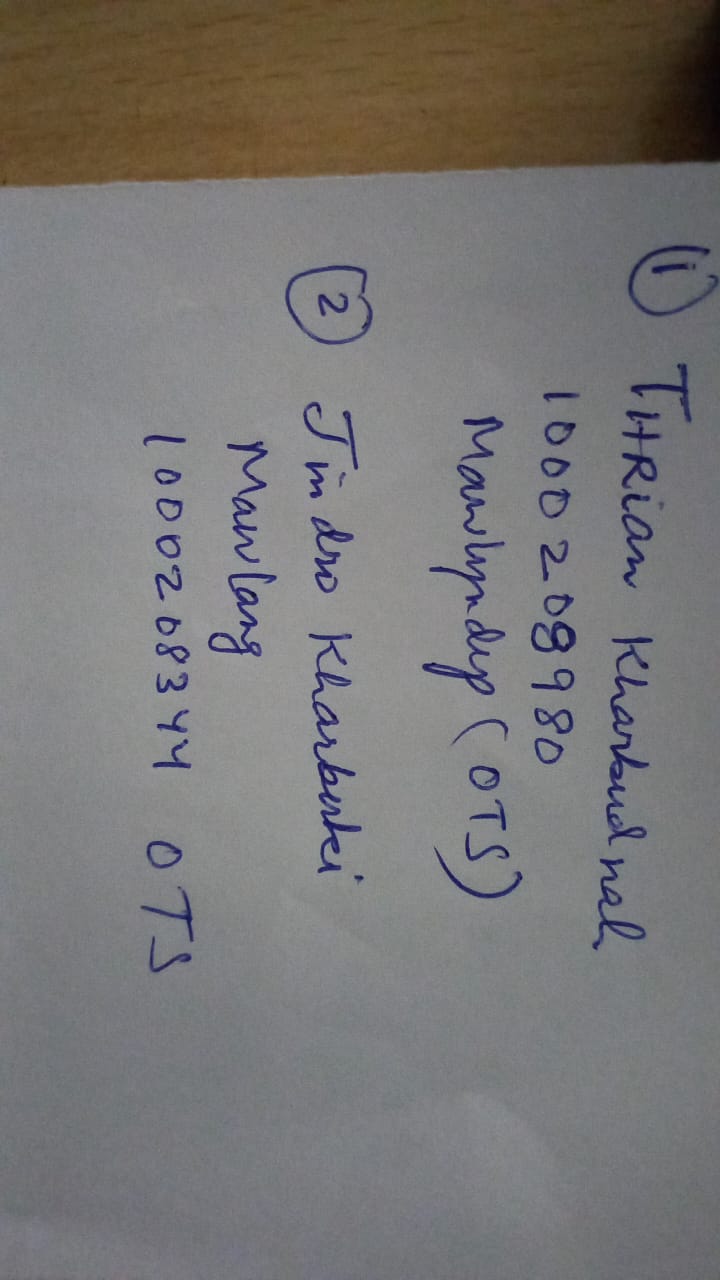 ① THRian Kharbudnah
1000208980
Mawlyndep (OTS)
② Jindro Kharbuki
Mawlang
1000208344 OTS